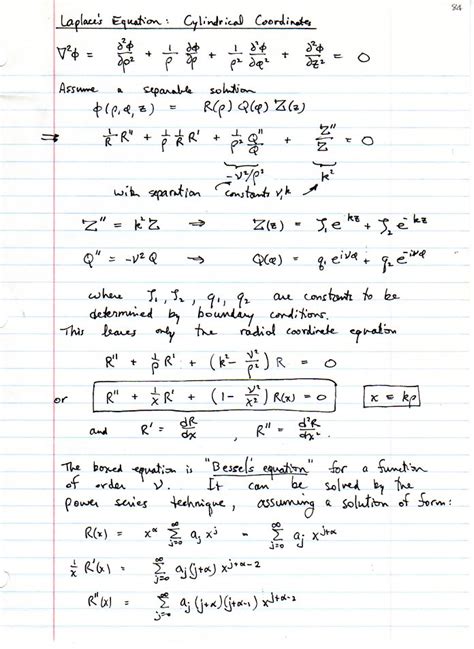 84
Laplace's Equation: Cylindrical Coordinates
∇²ϕ = ∂²ϕ/∂ρ² + 1/ρ ∂ϕ/∂ρ + 1/ρ² ∂²ϕ/∂φ² + ∂²ϕ/∂z² = 0
Assume a separable solution
ϕ(ρ,φ,z) = R(ρ) Q(φ) Z(z)
⇒ 1/R R'' + 1/ρ 1/R R' + 1/ρ² Q''/Q + Z''/Z = 0
-ν²/ρ² k²
with separation constants ν, k
Z'' = k² Z ⇒ Z(z) = ζ₁ e^{kz} + ζ₂ e^{-kz}
Q'' = -ν² Q → Q(φ) = q₁ e^{iνφ} + q₂ e^{-iνφ}
where ζ₁, ζ₂, q₁, q₂ are constants to be
determined by boundary conditions.
This leaves only the radial coordinate equation
R'' + 1/ρ R' + (k² - ν²/ρ²) R = 0
or R'' + 1/x R' + (1 - ν²/x²) R(x) = 0 x = kρ
and R' = dR/dx, R'' = d²R/dx².
The boxed equation is "Bessel's equation" for a function
of order ν. It can be solved by the
power series technique, assuming a solution of form:
R(x) = x^α ∑_{j=0}^∞ a_j x^j = ∑_{j=0}^∞ a_j x^{j+α}
1/x R'(x) = ∑_{j=0}^∞ a_j (j+α) x^{j+α-2}
R''(x) = ∑_{j=0}^∞ a_j (j+α)(j+α-1) x^{j+α-2}